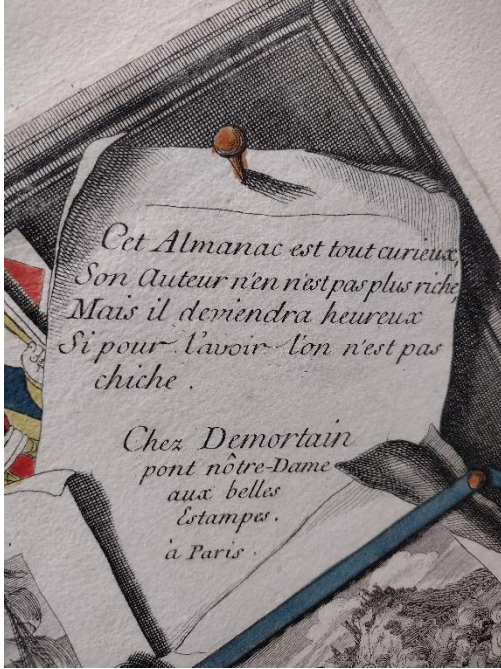 Cet Almanac est tout curieux,
Son Auteur n'en n'est pas plus riche,
Mais il deviendra heureux
Si pour l'avoir l'on n'est pas
chiche .
Chez Demortain
pont nôtre-Dame
aux belles
Estampes.
à Paris .